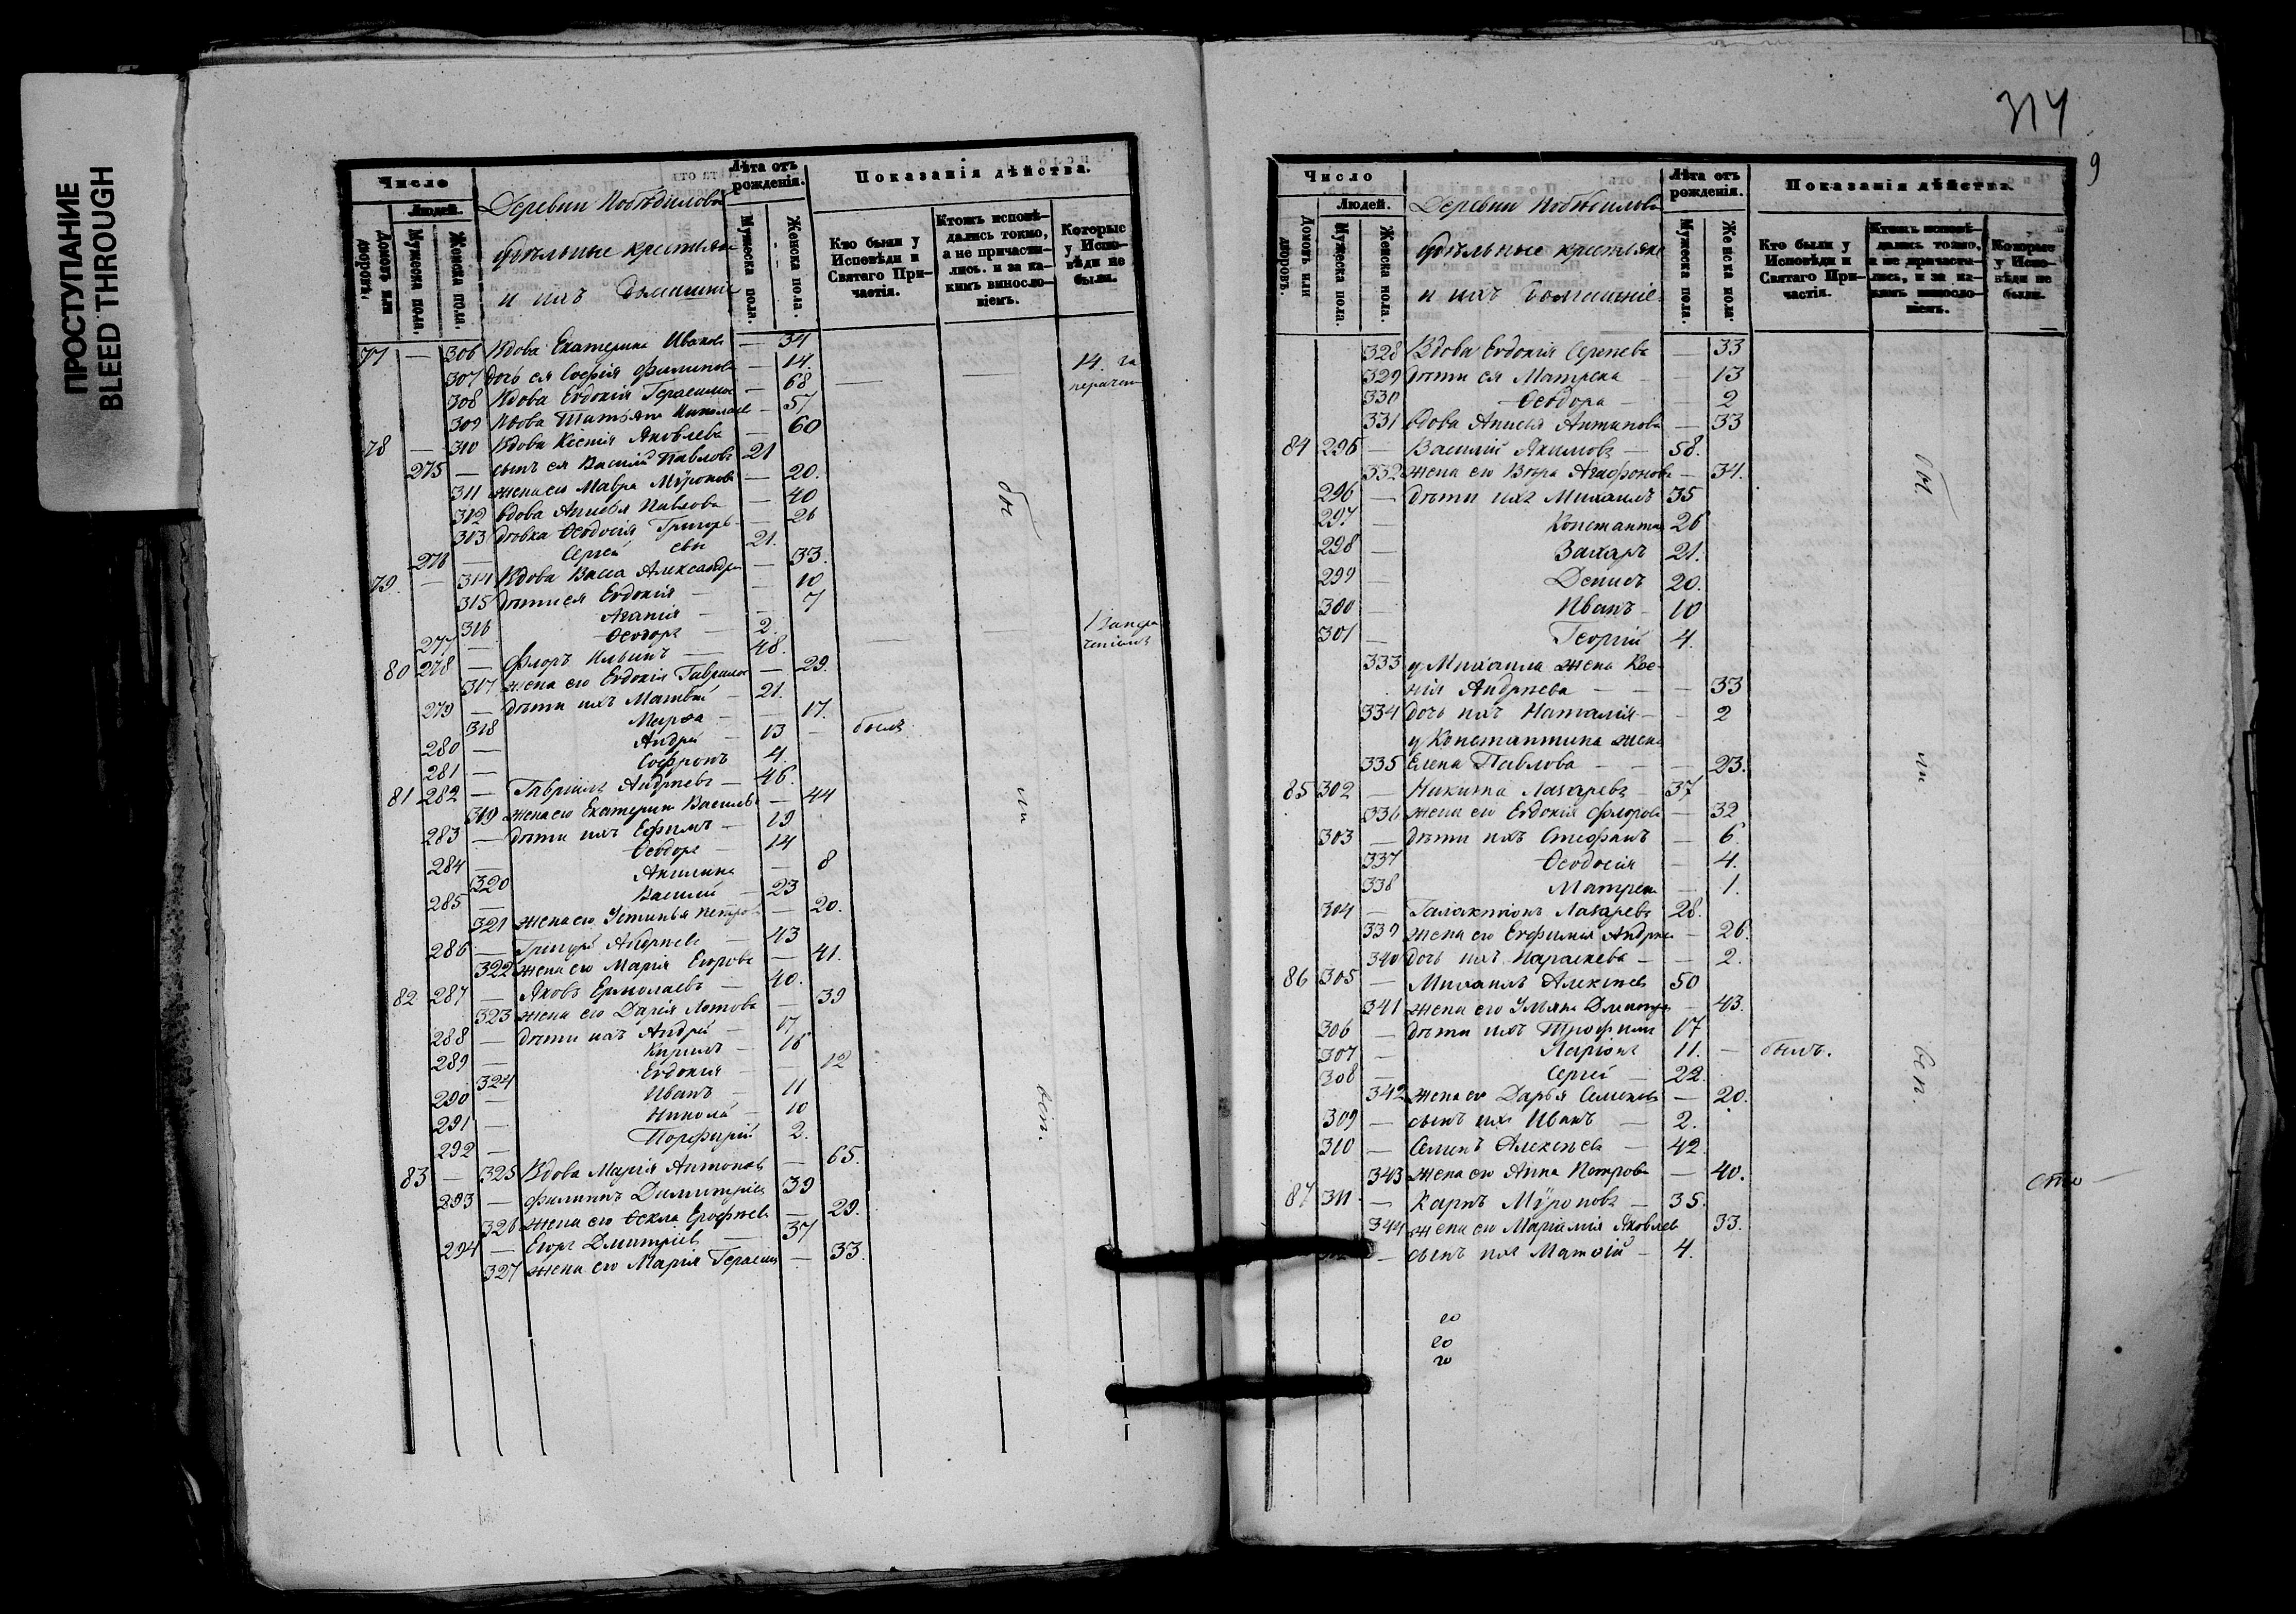 ПРОСТУПАНИЕ
BLEED THROUGH
Число
Людей.
Домовъ или дворовъ.
Мужеска пола.
Женска пола.
Деревни
удѣльные крестьяне
и ихъ домашніе
Лѣта отъ рожденія.
Мужеска пола.
Женска пола.
Показанія дѣйства.
Кто были у Исповѣди и Святаго Причастія.
Ктожъ исповѣдались токмо, а не причастились. и за какимъ винословіемъ.
Которые у Исповѣди не были.
77 — 306 Вдова Екатерина Иванов — 34
307 дочь ея Софія Филипова — 14.
308 Вдова Евдокія Герасимов — 68
309 Вдова Татьяна Николаев — 57
78 — 310 Вдова Ксенія Яковлева — 60
275 — сынъ ея Василій Павловъ 21
311 жена его Мавра Мѵронова — 20.
312 вдова Анисья Павлова — 40
313 дѣвка Ѳеодосія Григорь — 26
276 — Сергей евы 21.
79. — 314 Вдова Васса Александр — 33.
315 дѣти ея Евдокія — 10
316 Агапія — 7
277 — Ѳеодоръ — 2.
80 278 — Флоръ Ильинъ — 48.
317 жена его Евдокія Гаврилов — 29.
279 — дѣти ихъ Матвѣй — 21.
318 Марѳа — 17.
280 — Андрей — 13 — былъ
281 — Софронъ 4.
81 282 — Гавріилъ Андреевъ — 46.
319 жена его Екатерина Василь — 44
283 — дѣти ихъ Ефимъ — 19
284 — Ѳеодоръ — 14
320 Акилина — 8
285 — Василій — 23
321 жена его Устинья Петров — 20.
286 — Григорій Андреевъ — 43
322 жена его Марія Егорова — 41.
82 287 — Яковъ Ермолаевъ — 40.
323 жена его Дарія — 39
288 — дѣти ихъ Андрей — 17
289 — Кирилъ — 16
324 Евдокія — 12
290 — Иванъ — 11
291 — Никола — 10
292 — Порфирій 2.
83 — 325 Вдова Марія Антонов — 65.
293 — Филиппъ Димитріев 39
326 жена его Ѳекла Ерофѣев — 29.
294 — Егоръ Дмитріев — 37
327 жена его Марія Герасим — 33.
бы
ли
всѣ
314
9
Число
Людей.
Домовъ или дворовъ.
Мужеска пола.
Женска пола.
Деревни
удѣльные крестьяне
и ихъ домашніе
Лѣта отъ рожденія.
Мужеска пола.
Женска пола.
Показанія дѣйства.
Кто были у Исповѣди и Святаго Причастія.
Ктожъ исповѣдались токмо, а не причастились, и за какимъ винословіемъ.
Которые у Исповѣди не были.
328 Вдова Евдокія Сергѣева — 33
329 дѣти ея Матрена — 13
330 Ѳеодора — 2
331 Вдова Анисья Антипова — 33
84 295 — Василій Якимовъ — 58.
332 жена его Вѣра Агафонова — 34.
296 — дѣти ихъ Михаилъ 35
297 — Константинъ 26
298 — Захаръ 21.
299 — Денисъ 20.
300 — Иванъ — 10
301 — Георгій 4.
333 у Михаила жена Ксе-
нія Андреева — — 33
334 дочь ихъ Наталія — 2
у Константина жена
335 Елена Павлова — — 23.
85 302 — Никита Лазаревъ — 37
336 жена его Евдокія Флоров — 32
303 — дѣти ихъ Стефанъ — 6.
337 Ѳеодосія — 4.
338 Матрена — 1.
304 — Галактіонъ Лазаревъ 28.
339 жена его Евфимія Андреев — 26.
340 дочь ихъ Параскева — 2.
86 305 — Михаилъ Алексѣев 50
341 жена его Ульяна Дмитр — 43.
306 — дѣти ихъ Трофимъ 17
307 — Ларіонъ 11. — былъ.
308 — Сергей — 22.
342 жена его Дарья Семенов — 20.
309 — сынъ ихъ Иванъ — 2.
310 — Семенъ Алексѣевъ — 42.
343 жена его Анна Петрова — 40.
87 311 — Карпъ Мѵроновъ — 35.
344 жена его Маріамія Яковлев 33.
— сынъ ихъ Матѳій — 4.
бы
ли